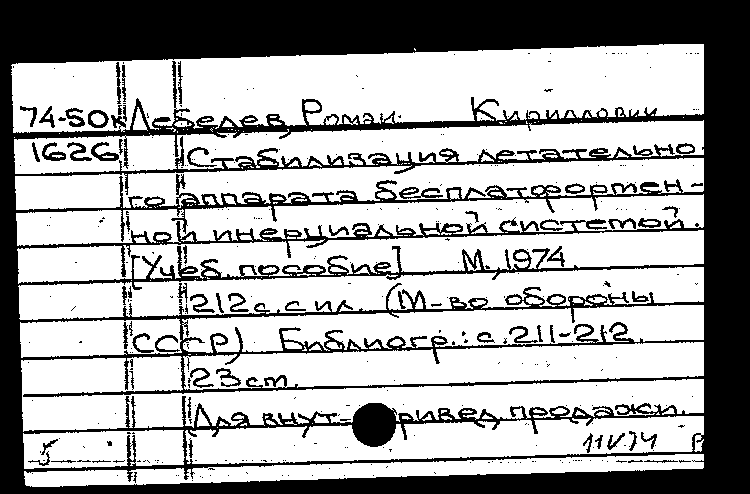 74-50к Лебедев, Роман Кириллович
1626 Стабилизация летательно-
го аппарата бесплатформен-
ной инерциальной системой.
[Учеб. пособие] М., 1974.
212 с. с ил. (М-во обороны
СССР) Библиогр.: с. 211-212.
23 см.
Для внут ривед. продажи.
5